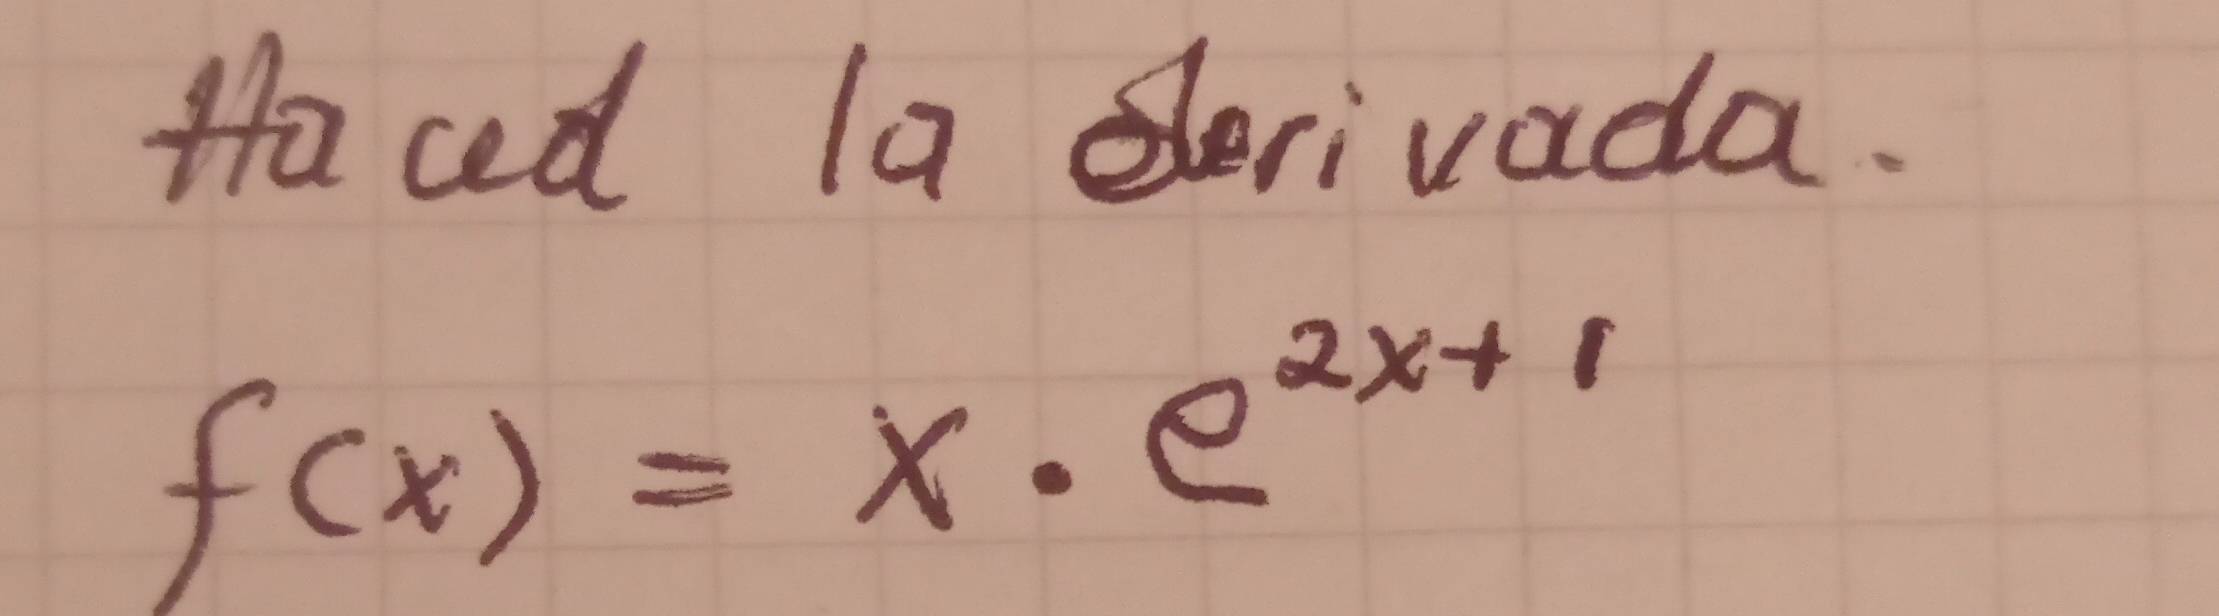 Haced la derivada.
f(x) = x · e^{2x+1}